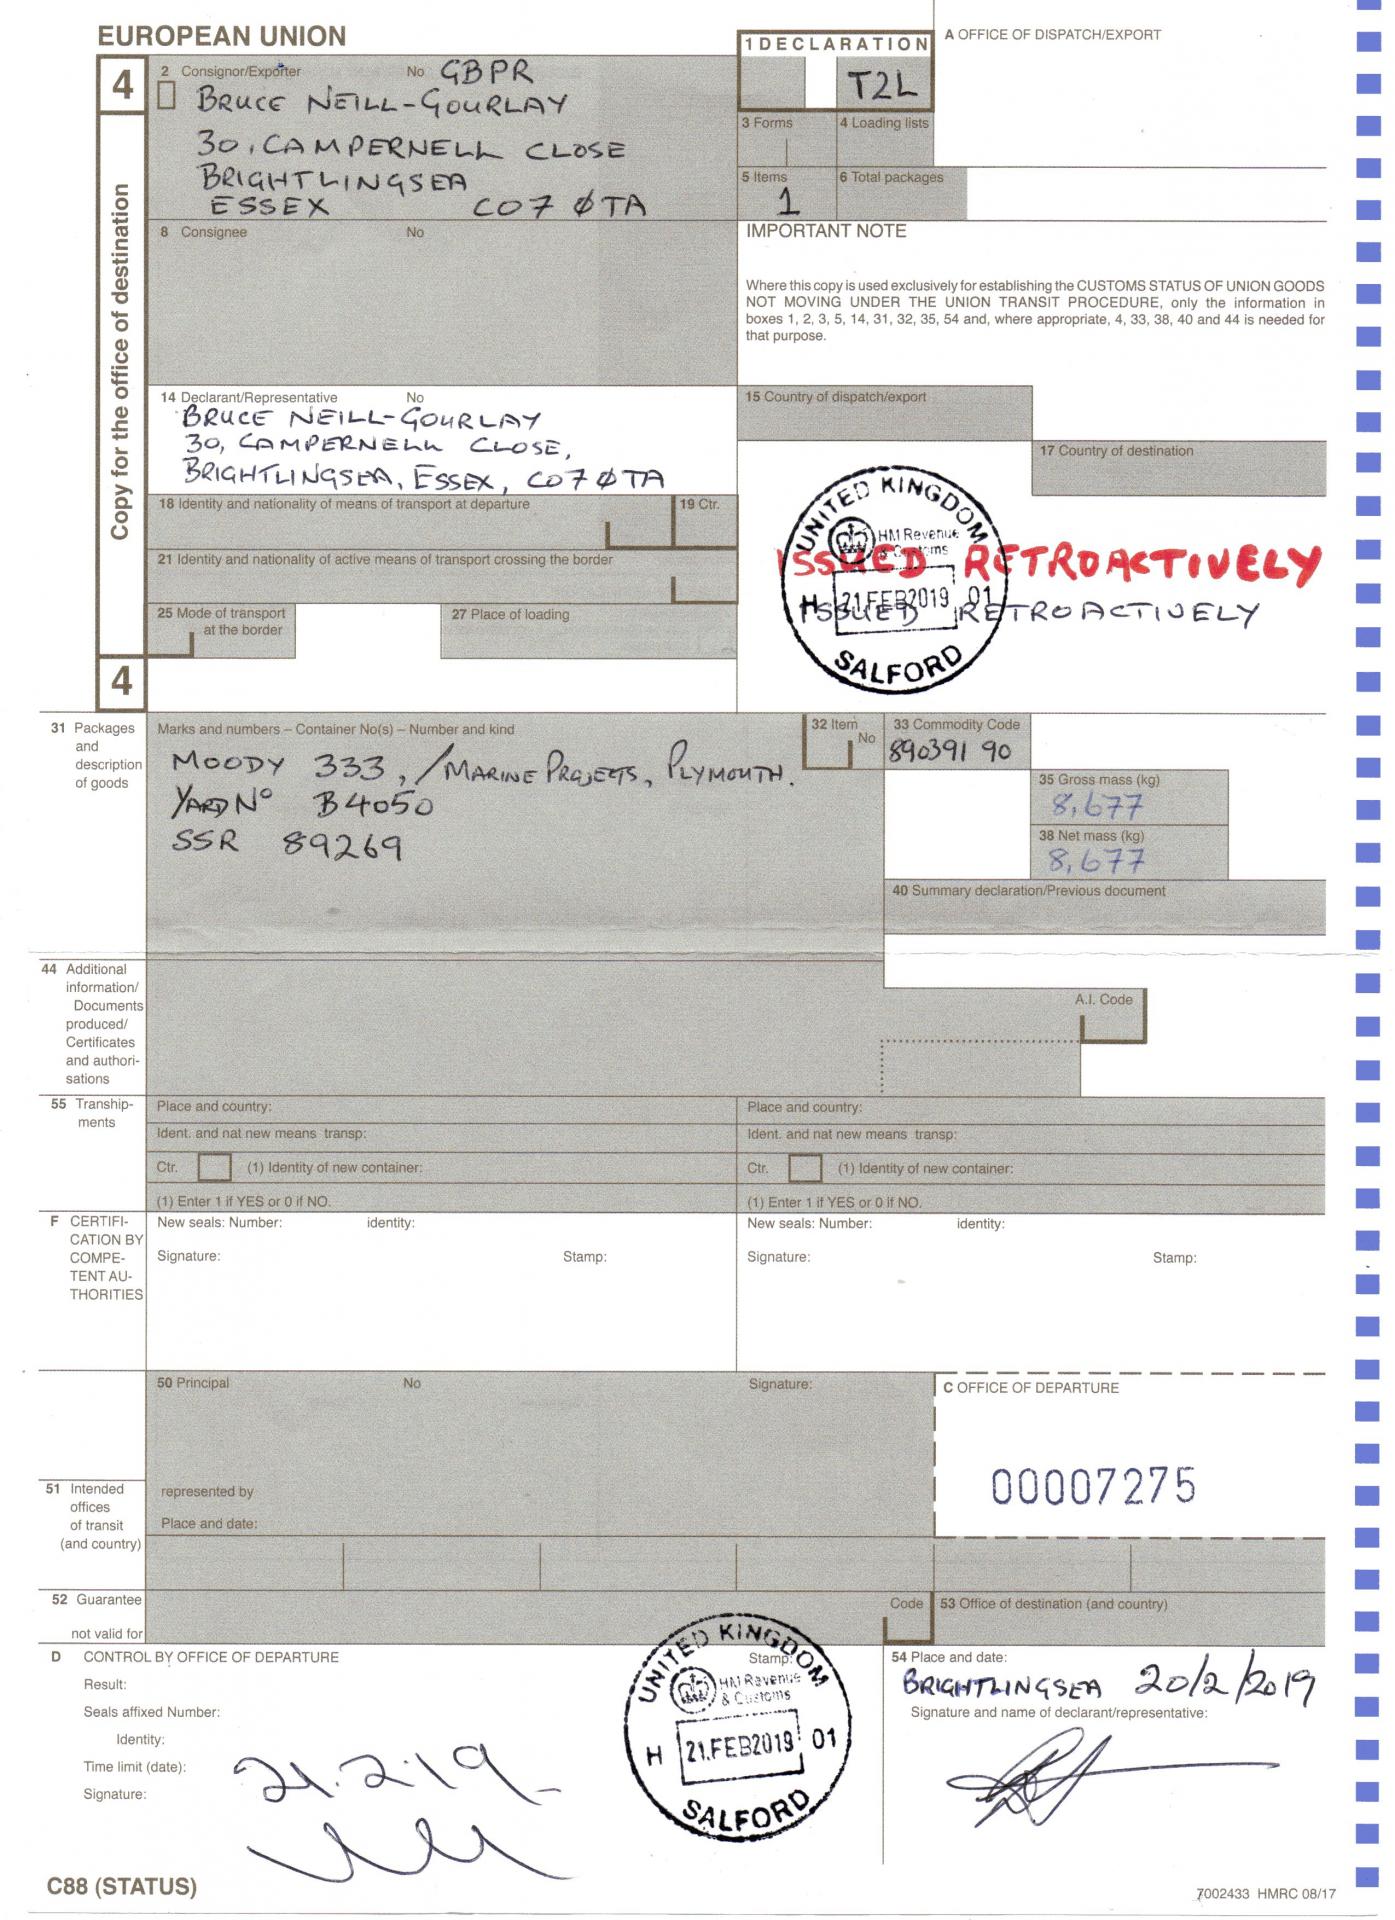 EUROPEAN UNION
1 DECLARATION
A OFFICE OF DISPATCH/EXPORT
4
2 Consignor/Exporter No GBPR
T2L
BRUCE NEILL-GOURLAY
30, CAMPERNELL CLOSE
BRIGHTLINGSEA
ESSEX CO7 0TA
3 Forms
4 Loading lists
5 Items
1
6 Total packages
Copy for the office of destination
8 Consignee No
IMPORTANT NOTE
Where this copy is used exclusively for establishing the CUSTOMS STATUS OF UNION GOODS
NOT MOVING UNDER THE UNION TRANSIT PROCEDURE, only the information in
boxes 1, 2, 3, 5, 14, 31, 32, 35, 54 and, where appropriate, 4, 33, 38, 40 and 44 is needed for
that purpose.
14 Declarant/Representative No
BRUCE NEILL-GOURLAY
30, CAMPERNELL CLOSE,
BRIGHTLINGSEA, ESSEX, CO7 0TA
15 Country of dispatch/export
17 Country of destination
18 Identity and nationality of means of transport at departure
19 Ctr.
21 Identity and nationality of active means of transport crossing the border
25 Mode of transport
at the border
27 Place of loading
UNITED KINGDOM
HM Revenue
& Customs
ISSUED RETROACTIVELY
H 21 FEB 2019 01
ISSUED RETROACTIVELY
SALFORD
4
31 Packages
and
description
of goods
Marks and numbers – Container No(s) – Number and kind
MOODY 333, / MARINE PROJECTS, PLYMOUTH.
YARD No B4050
SSR 89269
32 Item
No
33 Commodity Code
890391 90
35 Gross mass (kg)
8,677
38 Net mass (kg)
8,677
40 Summary declaration/Previous document
44 Additional
information/
Documents
produced/
Certificates
and authori-
sations
A.I. Code
55 Tranship-
ments
Place and country:
Ident. and nat new means transp:
Ctr. (1) Identity of new container:
(1) Enter 1 if YES or 0 if NO.
Place and country:
Ident. and nat new means transp:
Ctr. (1) Identity of new container:
(1) Enter 1 if YES or 0 if NO.
F CERTIFI-
CATION BY
COMPE-
TENT AU-
THORITIES
New seals: Number: identity:
Signature: Stamp:
New seals: Number: identity:
Signature: Stamp:
50 Principal No Signature:
represented by
Place and date:
C OFFICE OF DEPARTURE
00007275
51 Intended
offices
of transit
(and country)
52 Guarantee
not valid for
Code
53 Office of destination (and country)
D CONTROL BY OFFICE OF DEPARTURE
Result:
Seals affixed Number:
Identity:
Time limit (date):
Signature:
21.2.19
Stamp:
UNITED KINGDOM
HM Revenue
& Customs
H 21.FEB2019 01
SALFORD
54 Place and date:
BRIGHTLINGSEA 20/2/2019
Signature and name of declarant/representative:
C88 (STATUS)
7002433 HMRC 08/17